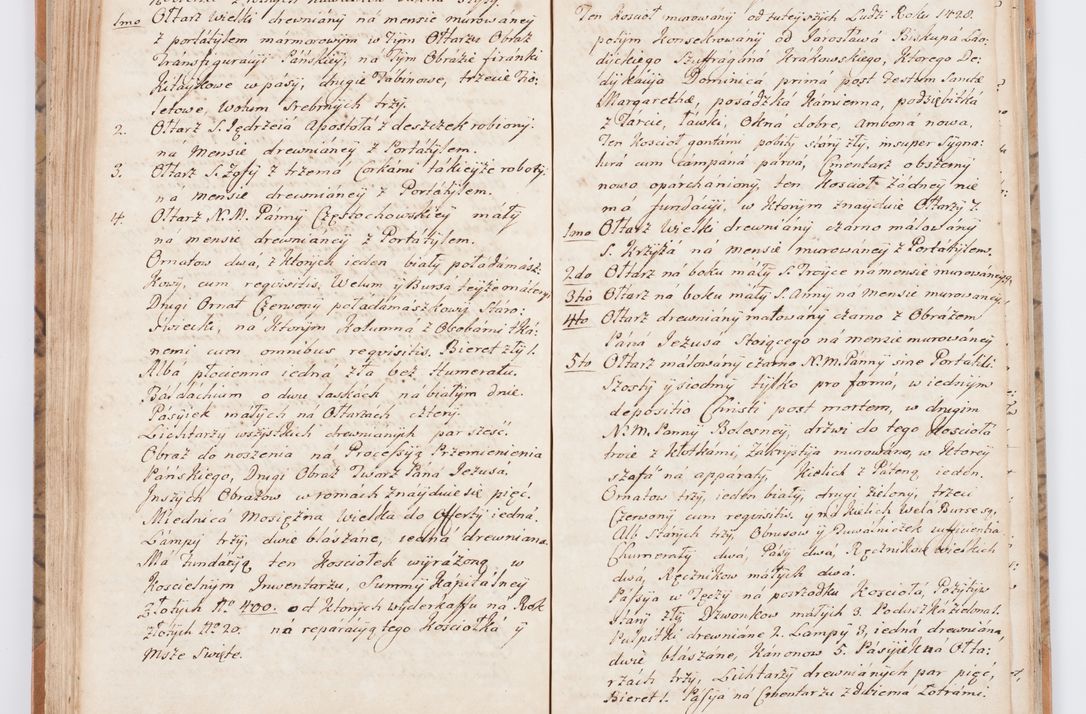 1mo Ołtarz Wielki drewniany na mensie murowaney
z portatylem marmorowym w Tym Ołtarzu Obraz
Transfiguracyi Pańskiey, na Tym Obrazie firanki
Kitaykowe w pasy, drugie Tabinowe, trzecie Fio-
letowe, wotum Srebrnych trzy.
2. Ołtarz S. Jędrzeia Apostoła z deszczek robiony
na Mensie drewnianey z Portatylem.
3. Ołtarz S. Zofij z trzema Corkami takieyże roboty,
na mensie drewnianey z Portatylem.
4. Ołtarz N. M. Panny Częstochowskiey mały
na mensie drewnianey z Portatylem.
Ornatow dwa, z których ieden biały poładamasz-
kowy, cum reqvisitis, Welum y Bursa teyże materyi
Drugi Ornat Czerwony poładamaszkowy Staro-
Swiecki, na którym Kolumna z Osobami tka-
nemi cum omnibus reqvisitis. Bieret zły 1.
Alba płocienna iedna zła bez Humerału.
Baldachium o dwu laskach na białym dnie.
Pasyiek małych na Ołtarzach cztery.
Lichtarzy wszystkich drewnianych par sześć.
Obraz do noszenia na Processyą Przemienienia
Pańskiego, Drugi Obraz Twarz Pana Jezusa,
Inszych Obrazow w romach znayduie się pięć.
Miednica Mosiężna Wielka do Offerty iedna.
Lampy trzy, dwie blaszane, iedna drewniana.
Ma Fundacyą ten Kosciołek wyrażoną w
Koscielnym Inwentarzu, Summy Kapitalney
Złotych No 400. od których wyderkaffu na Rok
Złotych No 20. na reparacyą tego Kosciołka y
Msze Święte.
Ten Kosciół murowany od tuteyszych Ludzi Roku 1420.
potym Konsekrowany od Jarosława Biskupa Lao-
dyckiego Szufragana Krakowskiego, Ktorego De-
dykacyia Dominica prima post Festum Sanctæ
Margarethæ, posadzka Kamienna, podsiębitka
z Tarcic, ławki, Okna dobre, ambona nowa,
Ten Kosciół gontami pobity stary zły, insuper Sygna-
turá cum campaná parvá, Cmentarz obszerny
nowo oparchaniony, ten Kosciół żadney nie
ma fundacyi, w ktorym znayduie Ołtarzy 7.
1mo Ołtarz Wielki drewniany czarno malowany
S. Krzyża na mensie murowaney z Portatylem.
2do Ołtarz na boku mały S. Troyce na mensie murowaney,
3tio Ołtarz na boku mały S. Anny na Mensie murowaney,
4to Ołtarz drewniany malowany czarno z Obrazem
Pana Jezusa Stoiącego na menzie murowaney
5to Ołtarz malowany czarno N. M. Panny sine Portatili
Szosty y siodmy tylko pro formá, w iednym
depositio Christi post mortem, w drugim
N. M. Panny Bolesney, drzwi do tego Kosciola
troie z kłotkami, Zakrystyia murowana, w Ktorey
szafa na apparaty, Kielich z Pateną ieden.
Ornatow trzy, ieden biały, drugi zielony, trzeci
Czerwony cum reqvisitis. y na kielich Wela Burse są,
Alb Starych trzy. Obrusow y Tuwalniczek sufficientia
Chumerały dwa, Pasy dwa, Ręcznikow wielkich
dwa, Ręcznikow małych dwa.
Passyia w Tęczy na posrzodku Kosciola, Pozytyw
stary zły, Dzwonkow małych 3. Poduszka zielona 1.
Pulpitki drewniane 2. Lampy 3, iedna drewniana,
dwie blaszane, Kanonow 5. Pasyiek na Ołta-
rzach trzy, Lichtarzy drewnianych par pięć,
Bieret 1. Passyia na Cmentarzu z dwiema Łotrami.